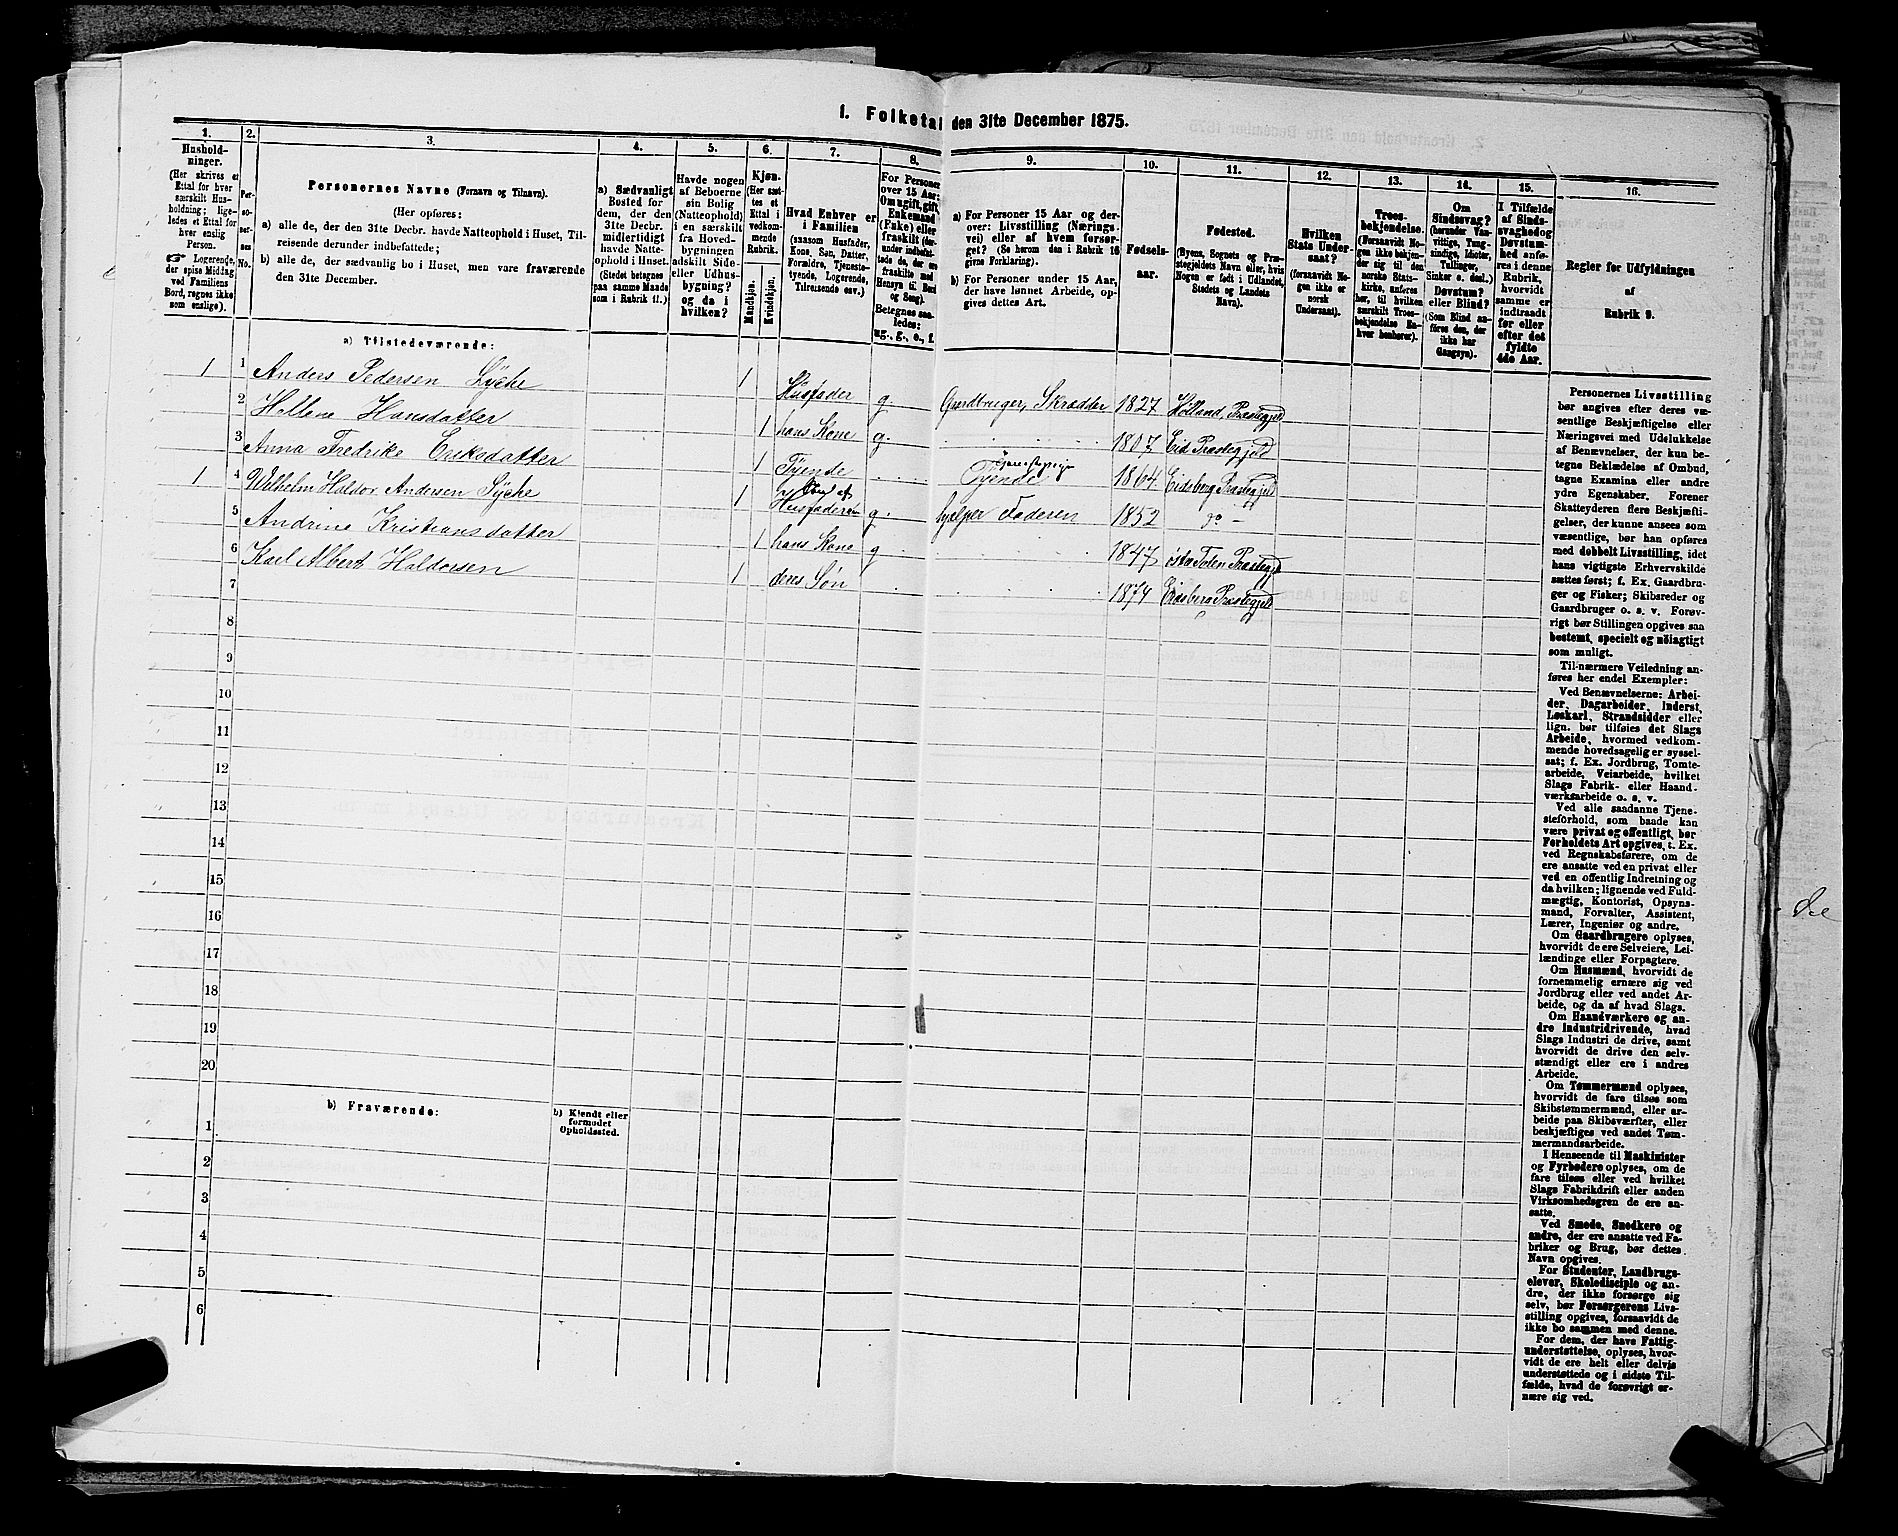 1. Folketal den 31te December 1875.
1. 2. 3. 4. 5. 6. 7. 8. 9. 10. 11. 12. 13. 14. 15. 16.
Hushold-
ninger.
(Her skrives et
Ettal for hver
særskilt Hus-
holdning; lige-
ledes et Ettal for
hver enslig
Person.
☞ Logerende,
der spise Middag
ved Familiens
Bord, regnes ikke
som enslige).
Per-
so-
ner-
nes
No.
Personernes Navne (Fornavn og Tilnavn).
(Her opføres:
a) alle de, der den 31te Decbr. havde Natteophold i Huset, Til-
reisende derunder indbefattede;
b) alle de, der sædvanlig bo i Huset, men vare fraværende
den 31te December.
a) Sædvanligt
Bosted for
dem, der den
31te Decbr.
midlertidigt
havde Natte-
ophold i Huset.
(Stedet betegnes
paa samme Maade
som i Rubrik 11.)
Havde nogen
af Beboerne
sin Bolig
(Natteophold)
i en særskilt
fra Hoved-
bygningen
adskilt Side-
eller Udhus-
bygning?
og da i
hvilken?
Kjøn.
(Her sæt-
tes et
Ettal i
vedkom-
mende
Rubrik.
Mandkjøn.
Kvindekjøn.
Hvad Enhver er
i Familien
(saasom Husfader,
Kone, Søn, Datter,
Forældre, Tjeneste-
tyende, Logerende,
Tilreisende osv.)
For Personer
over 15 Aar:
Om ugift, gift,
Enkemand
(Enke) eller
fraskilt (der-
under indbefat-
tede de, der ere
fraskilte med
Hensyn til Bord
og Seng).
Betegnes saa-
ledes:
ug., g., e., f.
a) For Personer 15 Aar og der-
over: Livsstilling (Nærings-
vei) eller af hvem forsør-
get? (Se herom den i Rubrik 16
givne Forklaring).
b) For Personer under 15 Aar,
der have lønnet Arbeide, op-
gives dettes Art.
Fødsels-
aar.
Fødested.
(Byens, Sognets og Præ-
stegjeldets Navn eller, hvis
Nogen er født i Udlandet,
Stedets og Landets
Navn).
Hvilken
Stats Under-
saat?
(forsaavidt No-
gen ikke er
norsk
Undersaat).
Troes-
bekjendelse.
(Forsaavidt No-
gen ikke bekjen-
der sig til den
norske Stats-
kirke, anføres
her, til hvilken
særskilt Troes-
bekjendelse En-
hver henhører).
Om
Sindssvag?
(herunder Van-
vittige, Tung-
sindige, Idioter,
Tullinger,
Sinker o. desl.)
Døvstum?
eller Blind?
(Som Blind an-
føres den, der
ikke har
Gangsyn).
I Tilfælde
af Sinds-
svaghed og
Døvstum-
hed anfø-
res i denne
Rubrik,
hvorvidt
samme er
indtraadt
før eller
efter det
fyldte
4de Aar.
Regler for Udfyldningen
af
Rubrik 9.
a) Tilstedeværende:
1 1 Anders Pedersen Lyche 1 Husfader g Gaardbruger, Skrædder 1827 Høland, Præstegjeld
2 Hellene Hansdatter 1 hans Kone g. 1807 Eid Præstegjeld
3 Anna Fredrike Eriksdatter 1 Tyende Tyende 1864 Eidsberg Præstegjeld
1 4 Wilhelm Haldor Andersen Lyche 1 Søn af Husfaderen g. hjelper Faderen 1852 do -
5 Andrine Kristiansdatter 1 hans Kone g 1847 østre Toten Præstegjd
6 Karl Albert Haldorsen 1 deres Søn 1874 Eidsberg Præstegjeld
7
8
9
10
11
12
13
14
15
16
17
18
19
20
b) Fraværende:
b) Kjendt eller
formodet
Opholdssted.
1
2
3
4
5
6
Personernes Livsstilling
bør angives efter deres væ-
sentlige Beskjæftigelse eller
Næringsvei med Udelukkelse
af Benævnelser, der kun be-
tegne Beklædelse af Ombud,
tagne Examina eller andre
ydre Egenskaber. Forener
Skatteyderen flere Beskjæfti-
gelser, der kunne ansees som
væsentlige, bør han opføres
med dobbelt Livsstilling, idet
hans vigtigste Erhvervskilde
sættes først; f. Ex. Gaardbru-
ger og Fisker; Skibsreder og
Gaardbruger o. s. v. Forøv-
rigt bør Stillingen opgives saa
bestemt, specielt og nöiagtigt
som muligt.
Til nærmere Veiledning an-
føres her endel Exempler:
Ved Benævnelserne: Arbei-
der, Dagarbeider, Inderst,
Løskarl, Strandsidder eller
lign. bør tilføies det Slags
Arbeide, hvormed vedkom-
mende hovedsagelig er syssel-
sat; f. Ex. Jordbrug, Tomte-
arbeide, Veiarbeide, hvilket
Slags Fabrik- eller Haand-
værksarbeide o. s. v.
Ved alle saadanne Tjene-
steforhold, som baade kan
være privat og offentligt, bør
Forholdets Art opgives, t. Ex.
ved Regnskabsførere, om de
ere ansatte ved en privat eller
ved en offentlig Indretning og
da hvilken; lignende ved Fuld-
mægtig, Kontorist, Opsyns-
mand, Forvalter, Assistent,
Lærer, Ingeniør og andre.
Om Gaardbrugere oplyses,
hvorvidt de ere Selveiere, Lei-
lændinge eller Forpagtere.
Om Husmænd, hvorvidt de
fornemmelig ernære sig ved
Jordbrug eller ved andet Ar-
beide, og da af hvad Slags.
Om Haandværkere og an-
dre Industridrivende, hvad
Slags Industri de drive, samt
hvorvidt de drive den selv-
stændigt eller ere i andres
Arbeide.
Om Tømmermænd oplyses,
hvorvidt de fare tilsøs som
Skibstømmermænd, eller ar-
beide paa Skibsværfter, eller
beskjæftiges ved andet Tøm-
mermandsarbeide.
I Henseende til Maskinister
og Fyrbødere oplyses, om de
fare tilsøs eller ved hvilket
Slags Fabrikdrift eller anden
Virksomhedsgren de ere an-
satte.
Ved Smede, Snedkere og
andre, der ere ansatte ved Fa-
briker og Brug, bør dettes
Navn opgives.
For Studenter, Landbrugs-
elever, Skoledisciple og an-
dre, der ikke forsørge sig
selv, bør Forsørgerens Livs-
stilling opgives, forsaavidt de
ikke bo sammen med denne.
For dem, der have Fattig-
understøttelse, oplyses, hvor-
vidt de ere helt eller delvis
understøttede og i sidste Til-
fælde, hvad de forøvrigt er-
nære sig ved.